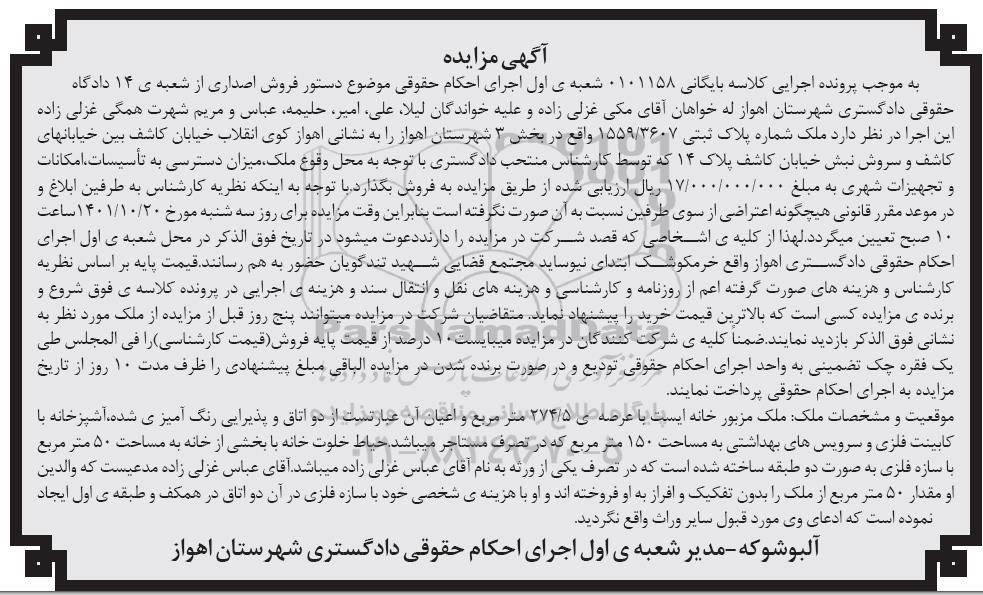 آگهی مزایده
به موجب پرونده اجرایی کلاسه بایگانی ۰۱۰۱۱۵۸ شعبه ی اول اجرای احکام حقوقی موضوع دستور فروش اصداری از شعبه ی ۱۴ دادگاه
حقوقی دادگستری شهرستان اهواز له خواهان آقای مکی غزلی زاده و علیه خواندگان لیلا، علی، امیر، حلیمه، عباس و مریم شهرت همگی غزلی زاده
این اجرا در نظر دارد ملک شماره پلاک ثبتی ۱۵۵۹/۳۶۰۷ واقع در بخش ۳ شهرستان اهواز را به نشانی اهواز کوی انقلاب خیابان کاشف بین خیابانهای
کاشف و سروش نبش خیابان کاشف پلاک ۱۴ که توسط کارشناس منتخب دادگستری با توجه به محل وقوع ملک،میزان دسترسی به تأسیسات،امکانات
و تجهیزات شهری به مبلغ ۱۷/۰۰۰/۰۰۰/۰۰۰ ریال ارزیابی شده از طریق مزایده به فروش بگذارد.با توجه به اینکه نظریه کارشناس به طرفین ابلاغ و
در موعد مقرر قانونی هیچگونه اعتراضی از سوی طرفین نسبت به آن صورت نگرفته است بنابراین وقت مزایده برای روز سه شنبه مورخ ۱۴۰۱/۱۰/۲۰ساعت
۱۰ صبح تعیین میگردد.لهذا از کلیه ی اشخاصی که قصد شرکت در مزایده را دارنددعوت میشود در تاریخ فوق الذکر در محل شعبه ی اول اجرای
احکام حقوقی دادگستری اهواز واقع خرمکوشک ابتدای نیوساید مجتمع قضایی شهید تندگویان حضور به هم رسانند.قیمت پایه بر اساس نظریه
کارشناس و هزینه های صورت گرفته اعم از روزنامه و کارشناسی و هزینه های نقل و انتقال سند و هزینه ی اجرایی در پرونده کلاسه ی فوق شروع و
برنده ی مزایده کسی است که بالاترین قیمت خرید را پیشنهاد نماید. متقاضیان شرکت در مزایده میتوانند پنج روز قبل از مزایده از ملک مورد نظر به
نشانی فوق الذکر بازدید نمایند.ضمناً کلیه ی شرکت کنندگان در مزایده میبایست۱۰ درصد از قیمت پایه فروش(قیمت کارشناسی)را فی المجلس طی
یک فقره چک تضمینی به واحد اجرای احکام حقوقی تودیع و در صورت برنده شدن در مزایده الباقی مبلغ پیشنهادی را ظرف مدت ۱۰ روز از تاریخ
مزایده به اجرای احکام حقوقی پرداخت نمایند.
موقعیت و مشخصات ملک: ملک مزبور خانه ایست با عرصه ی ۲۷۴/۵ متر مربع و اعیان آن عبارتست از دو اتاق و پذیرایی رنگ آمیز ی شده،آشپزخانه با
کابینت فلزی و سرویس های بهداشتی به مساحت ۱۵۰ متر مربع که در تصرف مستاجر میباشد.حیاط خلوت خانه با بخشی از خانه به مساحت ۵۰ متر مربع
با سازه فلزی به صورت دو طبقه ساخته شده است که در تصرف یکی از ورثه به نام آقای عباس غزلی زاده میباشد.آقای عباس غزلی زاده مدعیست که والدین
او مقدار ۵۰ متر مربع از ملک را بدون تفکیک و افراز به او فروخته اند و او با هزینه ی شخصی خود با سازه فلزی در آن دو اتاق در همکف و طبقه ی اول ایجاد
نموده است که ادعای وی مورد قبول سایر وراث واقع نگردید.
آلبوشوکه -مدیر شعبه ی اول اجرای احکام حقوقی دادگستری شهرستان اهواز
ParsNamadData
پایگاه اطلاع رسانی مناقصه و مزایده
۰۲۱-۸۸۳۴۹۶۷۰-۵